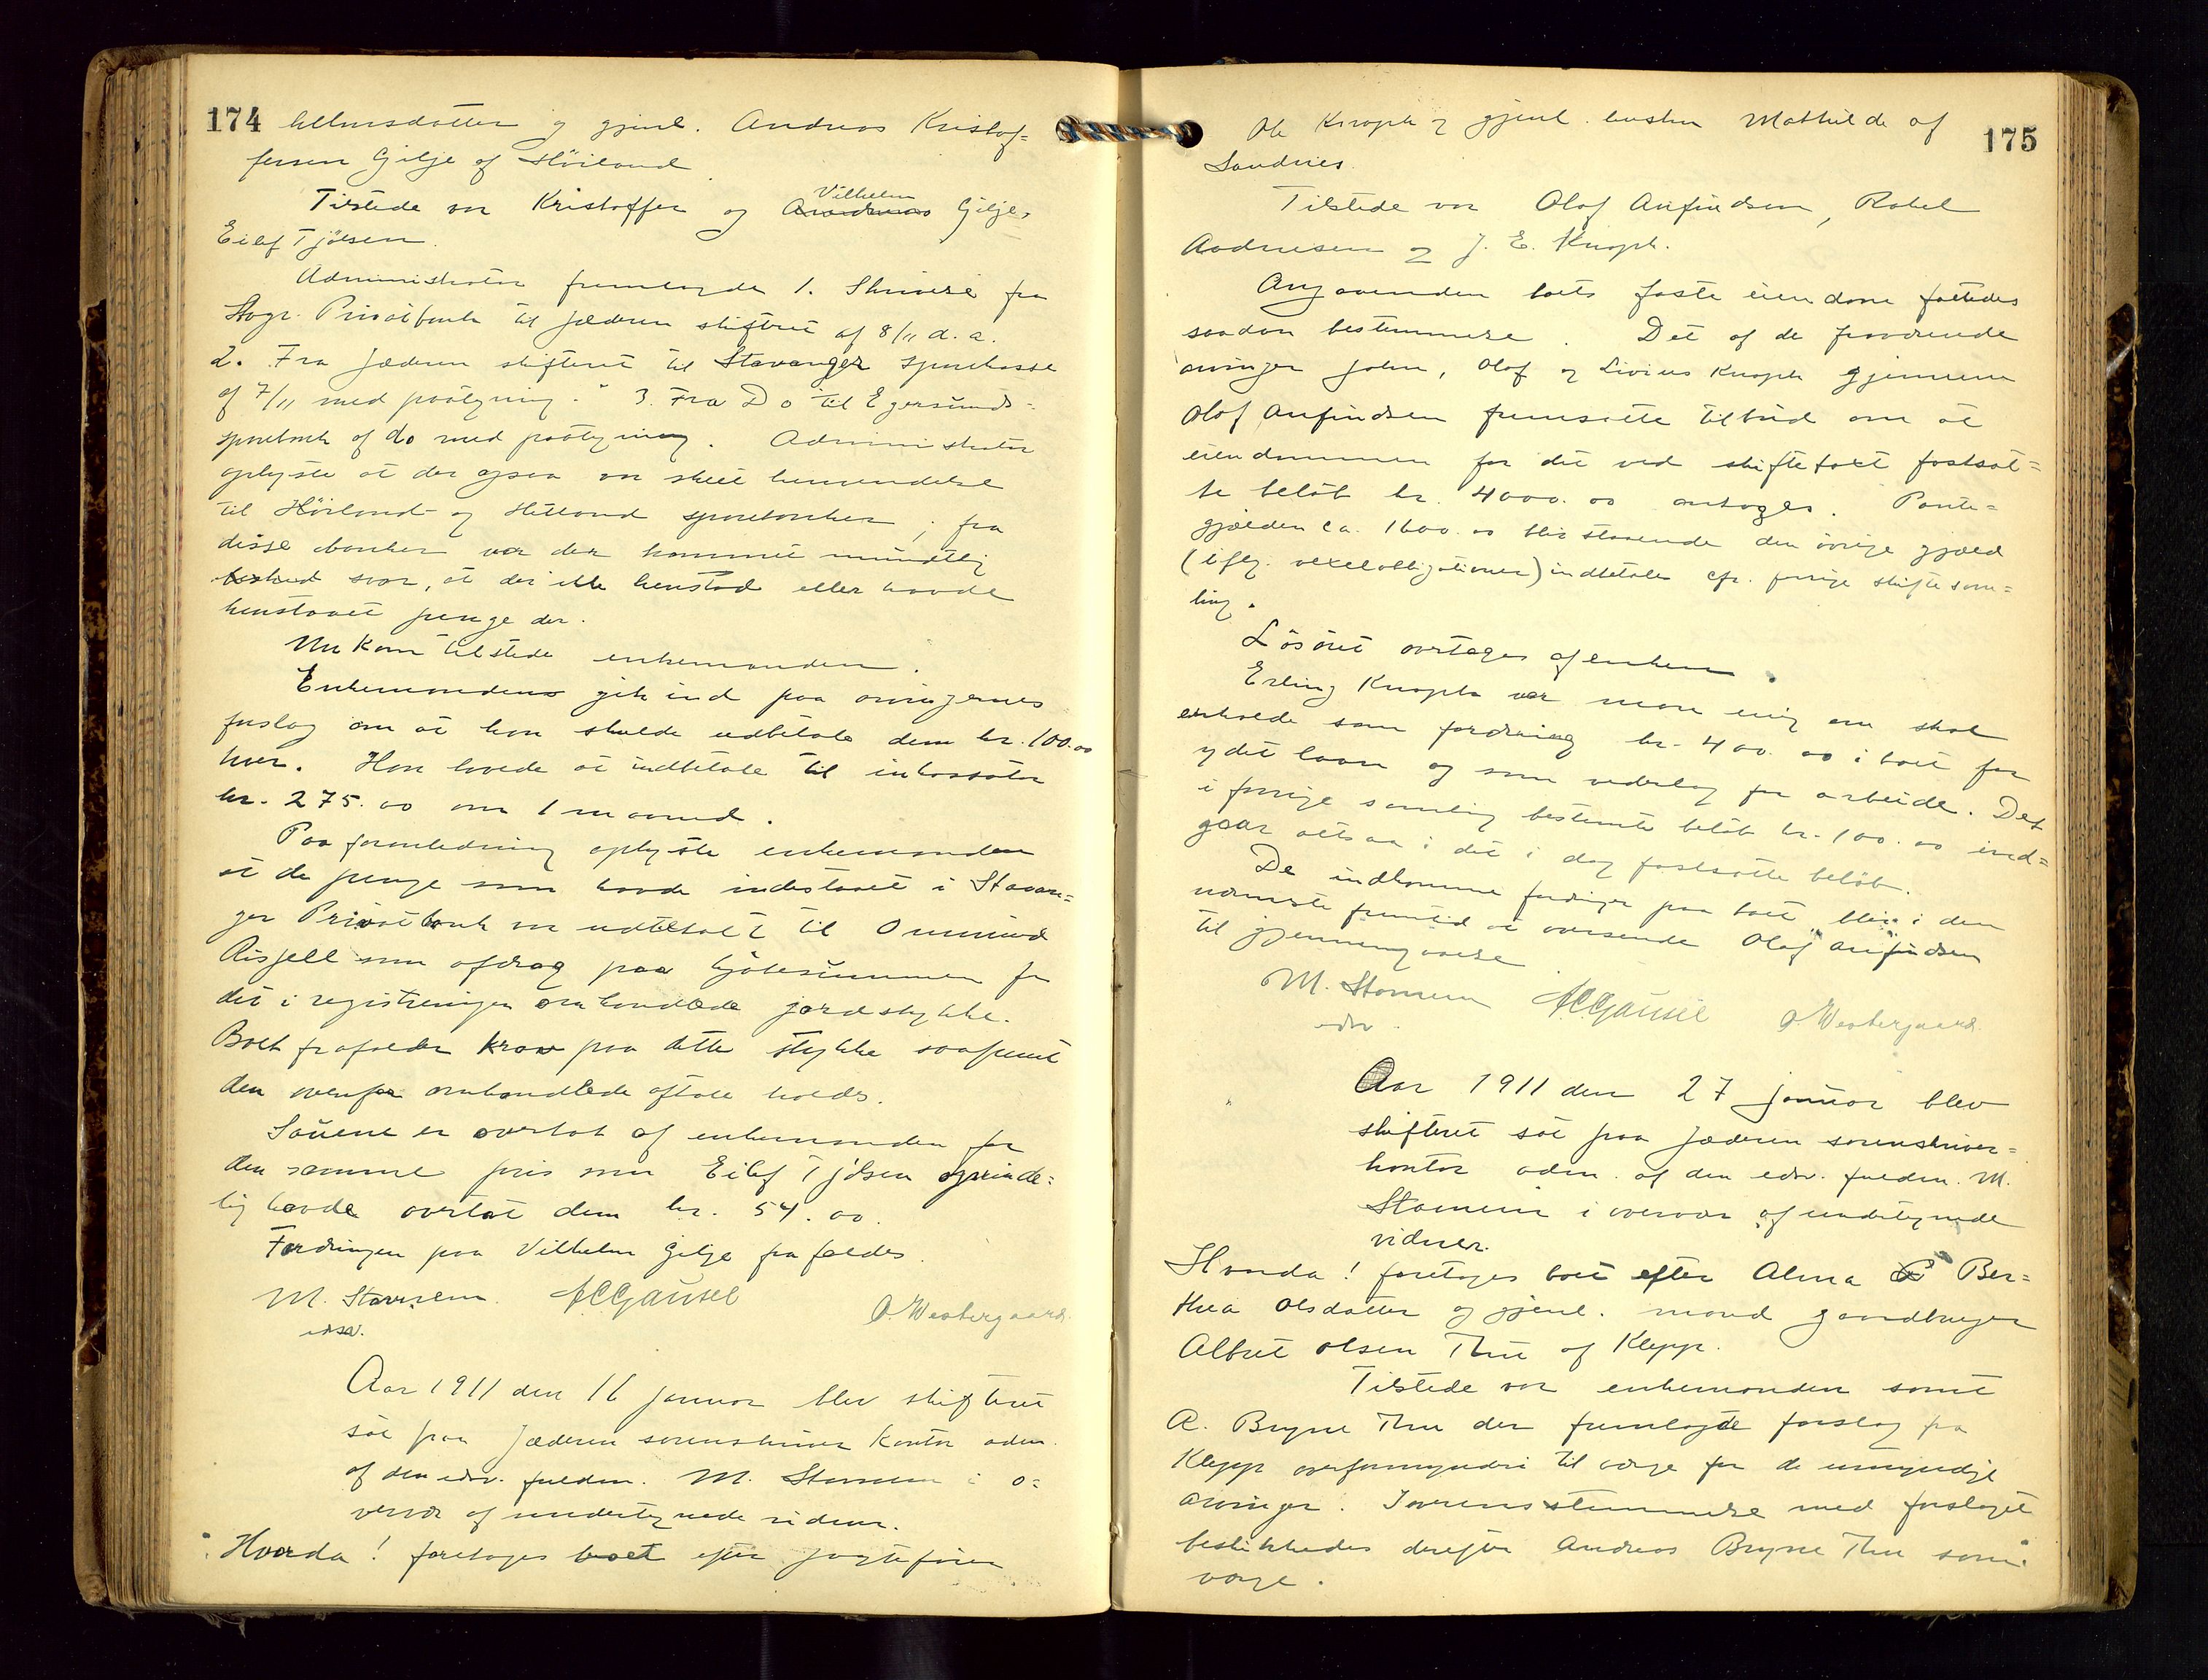 174
og gjenl. Andreas Kristof-
fersen Gilje af Höiland
Tilstede var Kristoffer og Vilhelm Gilje,
Eilef Tjölsen.
Administrator fremlagde 1. Skrivelse fra
Stvgr. Privatbank til Jæderen skifteret af 8/11 d. a.
2. Fra Jæderen skifteret til Stavanger Sparekasse
af 7/11 med paategning. 3. Fra Do til Egersunds-
sparebank af do med paategning. Administrator
oplyste at der ogsaa var skeet henvendelse
til Höiland og Hetland sparebanker; fra
disse banker var der kommet mundtlig
svar, at der ikke henstod eller havde
henstaaet penge der.
Nu kom tilstede enkemanden.
Enkemanden gik ind paa arvingernes
forslag om at han skulde udbetale dem kr. 100.00
hver. Han lovede at indbetale til inkassator
kr. 275.00 om 1 maaned.
Paa foranledning oplyste enkemanden
at de penge som havde indestaaet i Stavan=
ger Privatbank var udbetalt til Ommund
som afdrag paa kjöbesummen for
det i registreringen omhandlede jordstykke.
Boet frafalder krav paa dette stykke saafremt
den ovenfor omhandlede aftale holdes.
Sauene er overtat af enkemanden for
den samme pris som Eilef Tjölsen oprinde=
lig havde overtat dem kr. 54.00.
Fordringen paa Vilhelm Gilje frafaldes.
M. Stamsem ACGausel O. Westergaard.
edsv.
Aar 1911 den 16 januar blev skifteret
sat paa Jæderen sorenskriver kontor adm.
af den edsv. fuldm. M. Stamsem i o=
vervær af undertegnede vidner.
Hvorda! foretages boet efter jagtefører
175
Ole Knoph og gjenl. hustru Mathilde af
Sandnes.
Tilstede var Olaf Anfindsen, Rakel
Andreesen og J. E. Knoph.
Angaaende boets faste eiendom fattedes
saadan bestemmelse. Det af de fraværende
arvinger John, Olaf og Livius Knoph gjennem
Olaf Anfindsen fremsatte tilbud om at
eiendommen for det ved skiftetaxt fastsat=
te belöb kr. 4000.00 antages. Pante=
gjælden ca. 1600.00 blir staaende den övrige gjæld
(iflg. vexelobligationer) indbetales cfr. forrige skiftesam=
ling.
Lösöret overtages af enken.
Erling Knoph var man enig om skal
erholde som fordring kr. 400.00 i boet for
ydet laan og som vederlag for arbeide. Det
i forrige samling bestemte belöb kr. 100.00 ind=
gaar altsaa i det i dag fastsatte belöb.
De indkomne fordringer paa boet blir i den
nærmeste fremtid at oversende Olaf Anfindsen
til gjennemgaaelse.
M. Stamsem ACGausel O. Westergaard.
edsv.
Aar 1911 den 27 januar blev
skifteret sat paa Jæderen sorenskriver=
kontor adm. af den edsv. fuldm. M.
Stamsem i overvær af undertegnede
vidner.
Hvorda! foretages boet efter Alma Ber=
thea Olsdatter og gjenl. mand gaardbruger
Albret Olsen Thu af Klepp.
Tilstede var enkemanden samt
A. Bryne Thu der fremlagde forslag fra
Klepp overformynderi til værge for de umyndige
arvinger. I overensstemmelse med forslaget
beskikkedes derefter Andreas Bryne Thu som
værge.